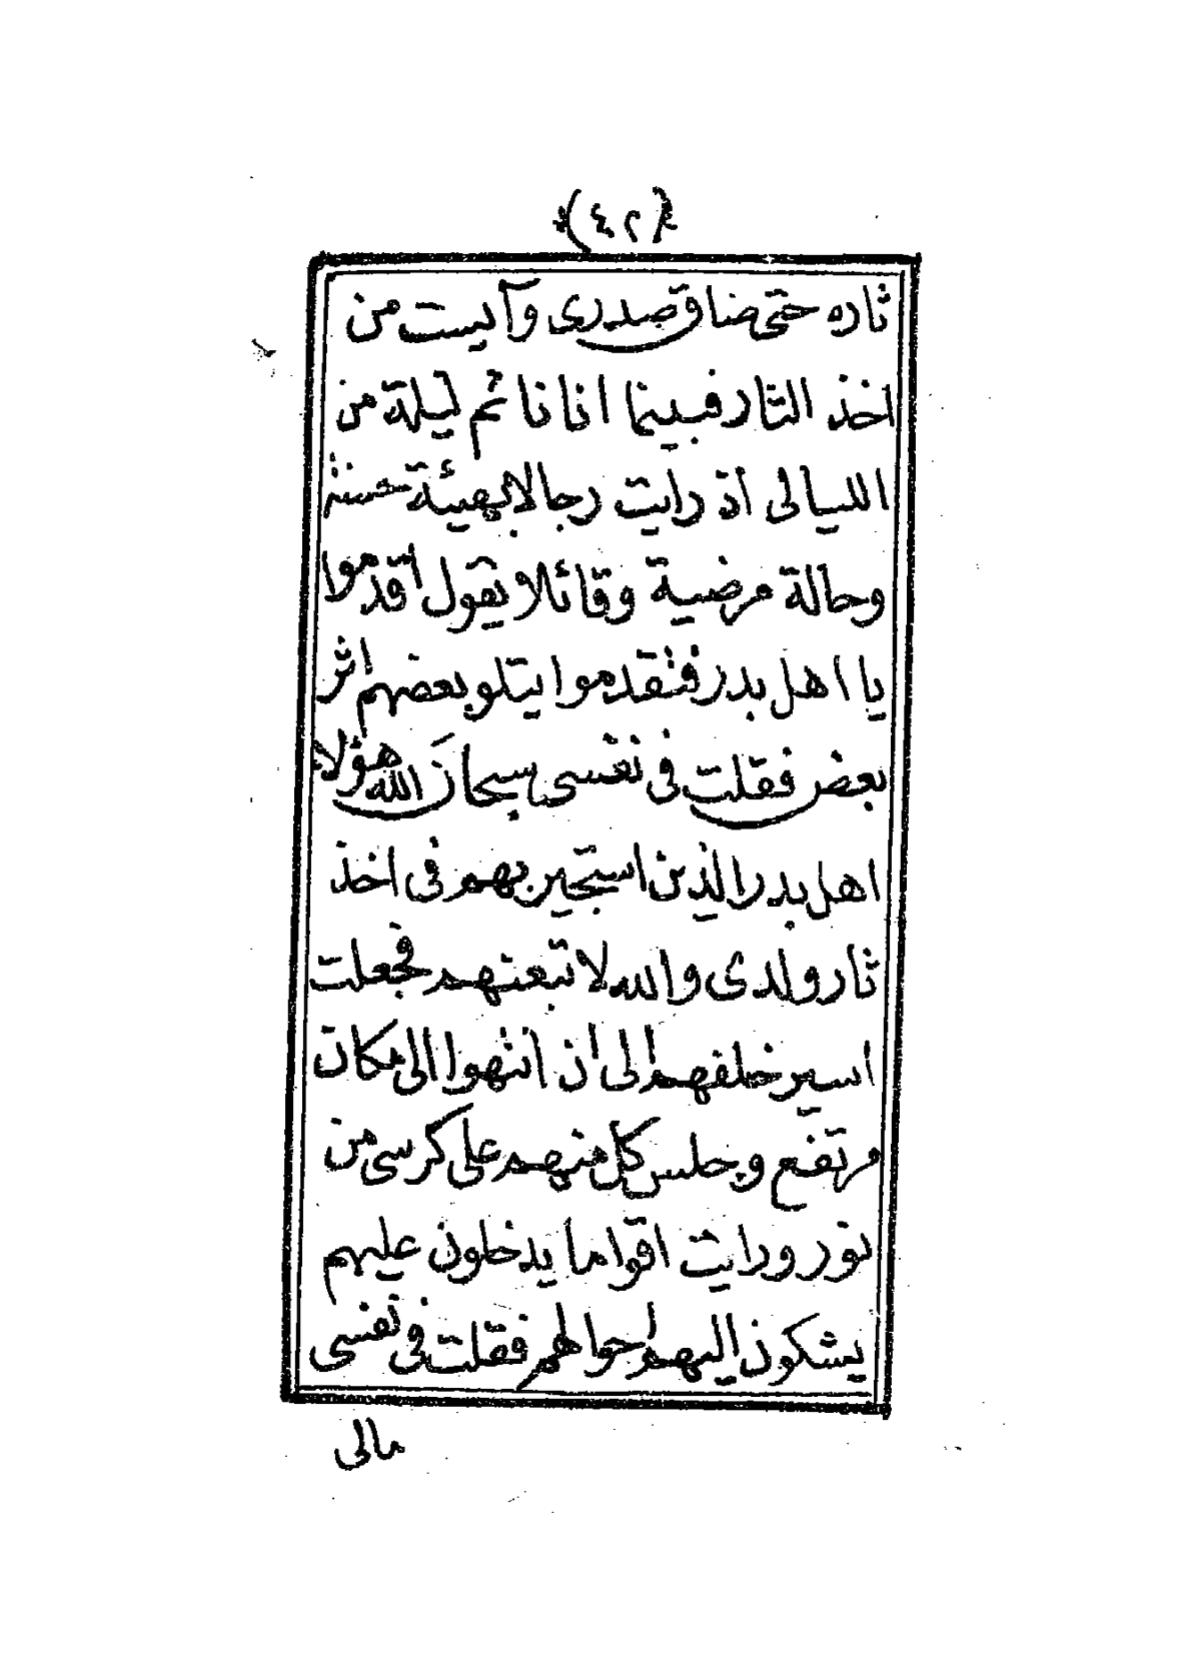 (٤٢)
ثاره حتى ضاق صدرى وآيست من
اخذ الثار فبينما انا نائم ليلة من
الليالى اذ رايت رجالا بهيئة حسنة
وحالة مرضية وقائلا يقول اقدموا
يا اهل بدر فتقدموا يتلو بعضهم اثر
بعض فقلت فى نفسى سبحانَ الله هؤلاء
اهل بدر الذين استجير بهم فى اخذ
ثار ولدى والله لا تبعنهم فجعلت
اسير خلفهم الى ان انتهوا الى مكان
مرتفع وجلس كل منهم على كرسى من
نور ورايت اقواما يدخلون عليهم
يشكون اليهم احوالهم فقلت فى نفسى
مالى